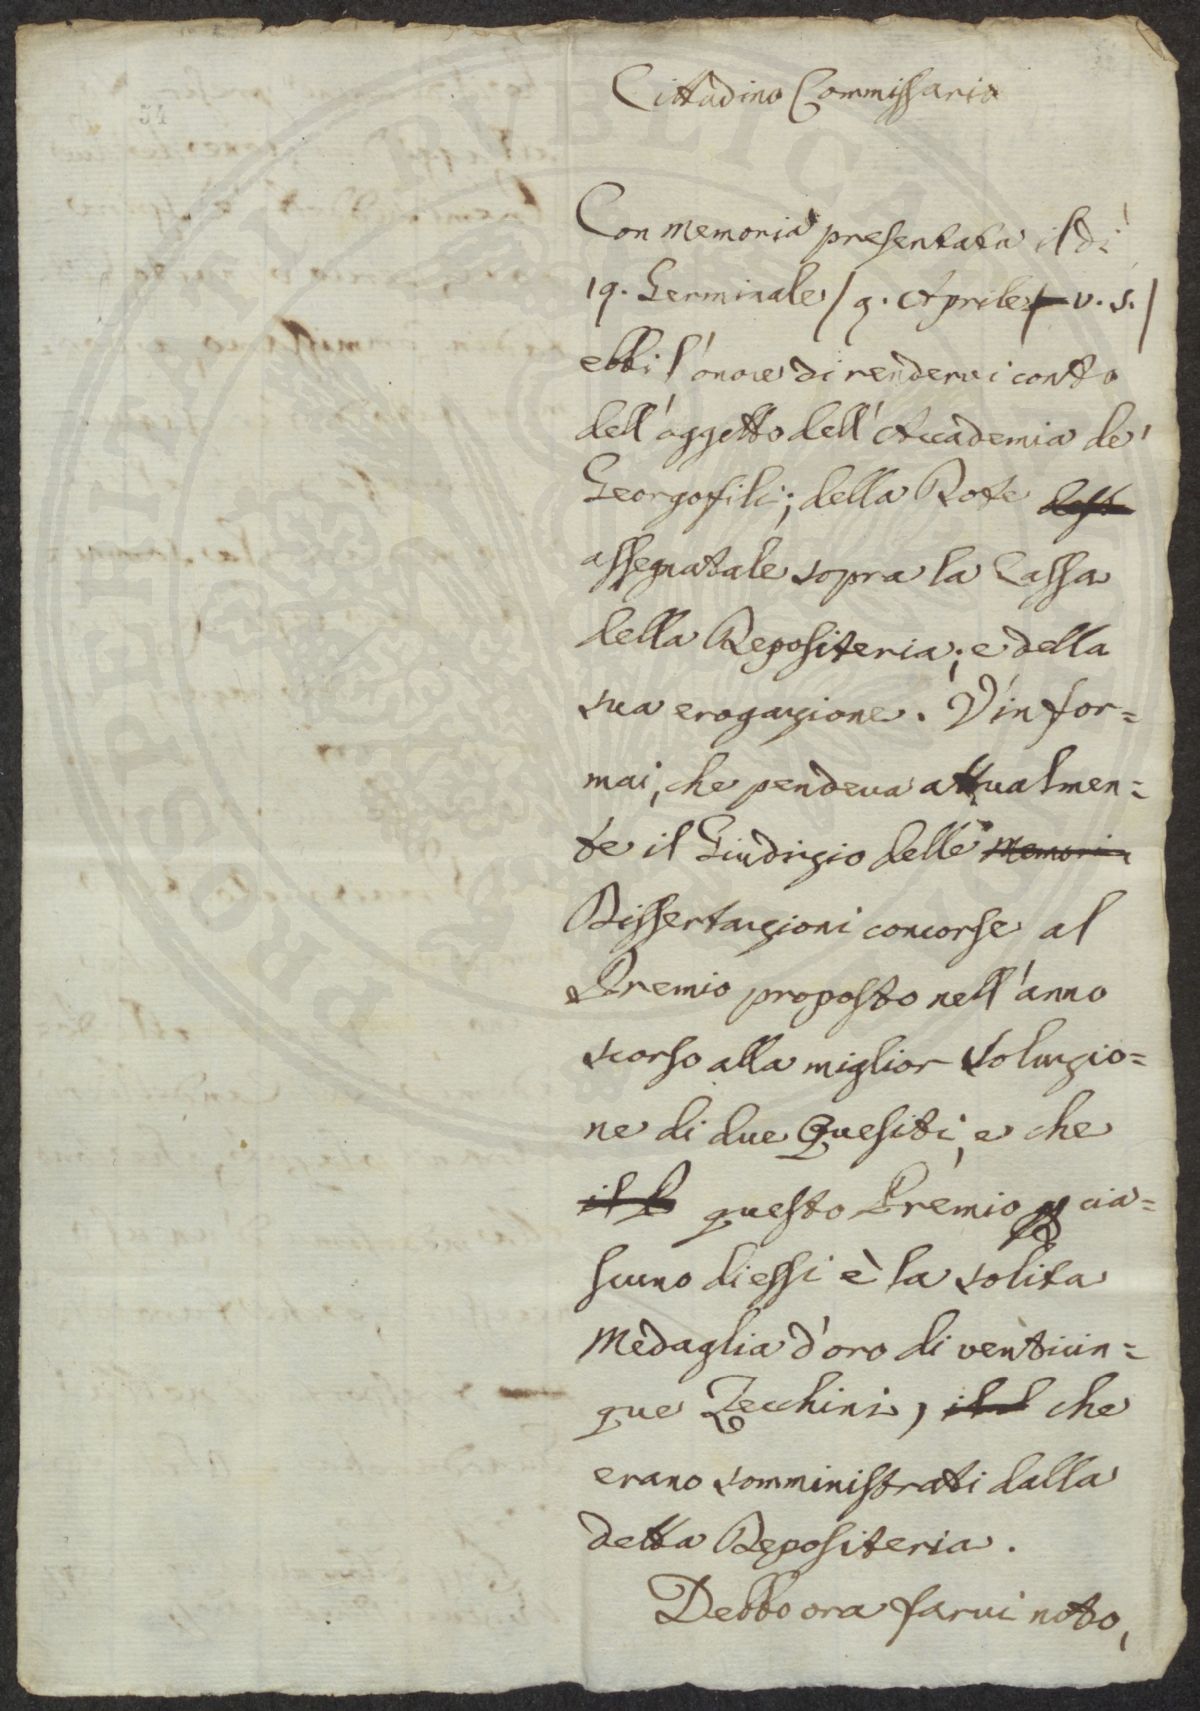 Cittadino Commissario
54
Con memoria presentata il dì
19. Germinale / 9. Aprile v. s. /
ebbi l'onore di rendervi conto
dell'oggetto dell'Accademia de'
Georgofili; della Dote
assegnatale sopra la Cassa
della Depositeria; e della
sua erogazione. V'infor=
mai, che pendeva attualmen=
te il Giudizio delle Memorie
Dissertazioni concorse al
Premio proposto nell'anno
scorso alla miglior soluzio=
ne di due Quesiti; e che
il P questo Premio p cia=
scuno di essi è la solita
Medaglia d'oro di venticin=
que Zecchini, che
erano somministrati dalla
detta Depositeria.
Debbo ora farvi noto,